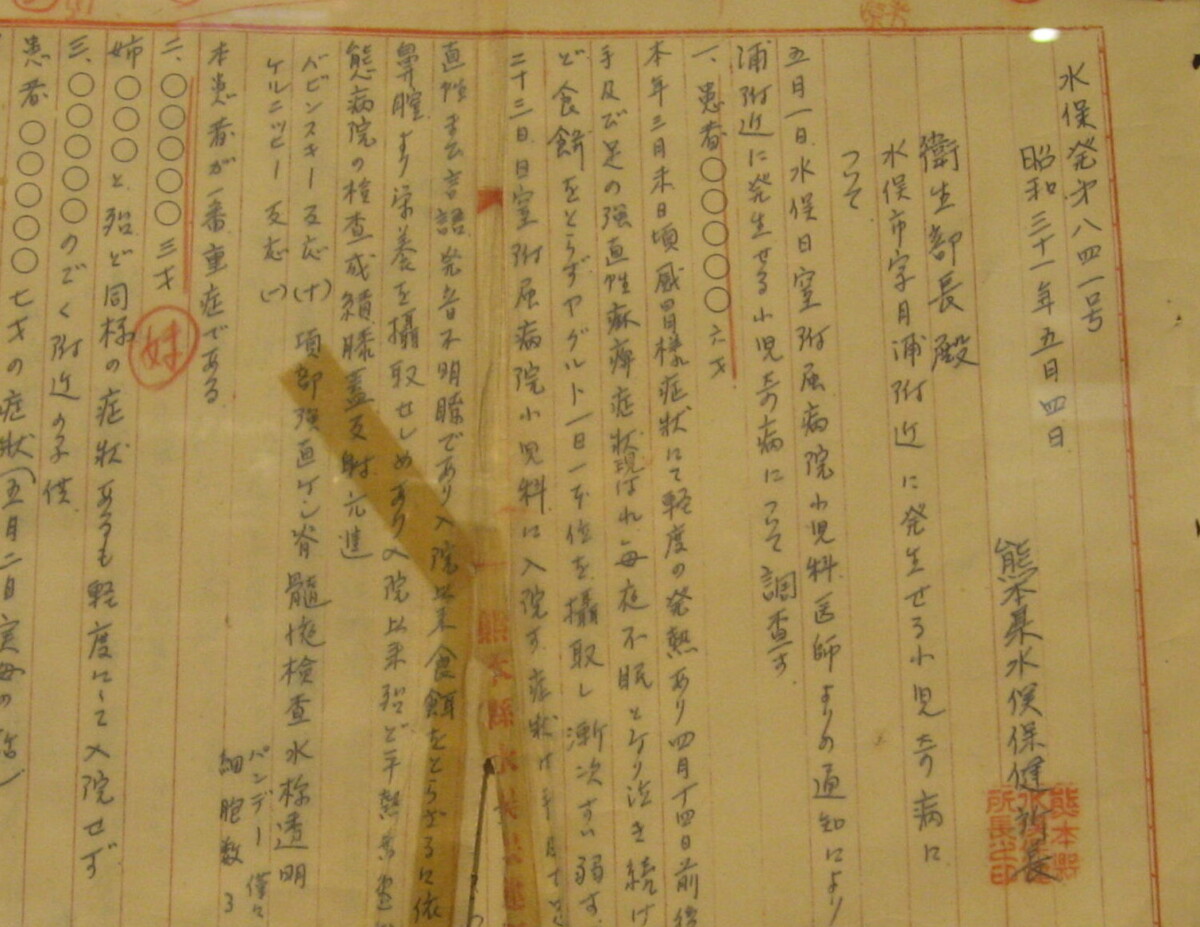 水保発才八四一号
昭和三十一年五月四日
熊本県水俣保健所長
熊本県水俣保健所長之印
衛生部長殿
水俣市字月浦附近に発生せる小児奇病に
ついて
五月一日、水俣日窒附属病院小児科医師よりの通知により
浦附近に発生せる小児奇病について調査す
一、患者〇〇〇〇〇六才
本年三月末日頃感冒様症状にて軽度の発熱あり四月十四日前後
手及び足の強直性麻痺症状現はれ、毎夜不眠となり泣き続け
ど食餌をとらずヤグルト一日一本位を摂取し漸次すい弱す。
二十三日、日窒附属病院小児科に入院す。症状は
直性
言語発音不明瞭であり入院以来食餌をとらざるに依
鼻腔より栄養を攝取せしめあり入院以来殆ど平熱
熊病院の検査成績膝蓋反射亢進
バビンスキー反応(十) 項部強直ケン脊髄液検査水様透明
ケルニッヒー反応(一)
パンデー僅々
細胞数3
本患者が一番重症である
二、〇〇〇〇〇三才
妹
姉〇〇〇と、殆ど同様の症状あるも軽度にて入院せず
三、〇〇〇〇〇のごく附近の子供
患者〇〇〇〇〇七才の症状(五月二日実母の話)